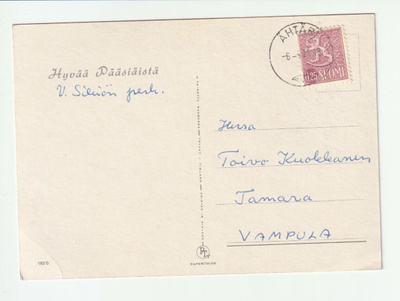 Hyvää Pääsiäistä
V. Siniön perh.
ÄHTÄRI
-6.-4
0,25 SUOMI
Herra
Toivo Kuokkanen
Tamara
VAMPULA